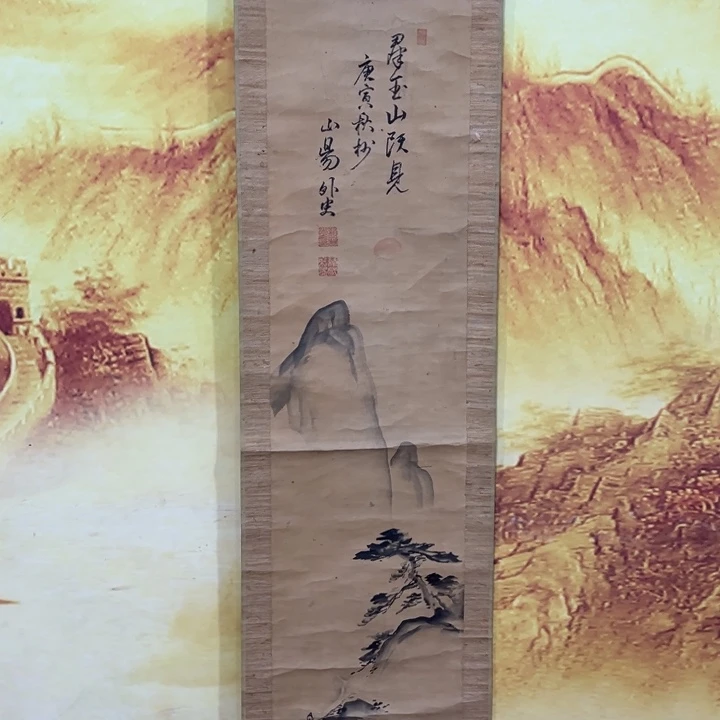 群玉山頭見
庚寅秋杪
山陽外史